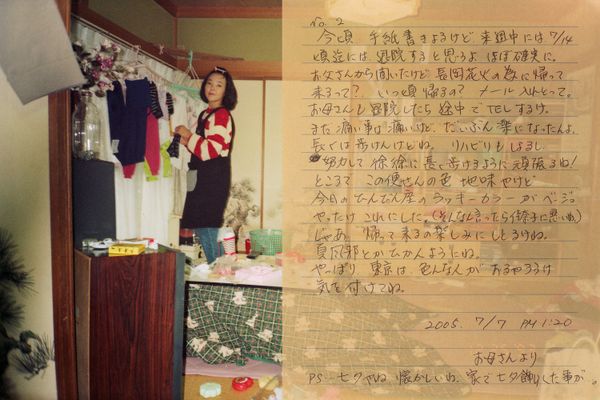 no. 2
今頃 手紙書きよるけど 来週中には 7/14
頃迄には 退院すると思うよ ほぼ確実に。
お父さんから聞いたけど 長岡花火の為に帰って
来るって?、いつ頃 帰るの? メール入れとって。
お母さんも退院したら 途中でTELするけ。
まだ痛い事は 痛いけど、だいぶん 楽になったんよ。
長くは歩けんけどね。 リハビリもしよるし
努力して 徐徐に長く歩けるように頑張るね!
ところで この便せんの色 地味やけど
今日の てんびん座の ラッキーカラーがベージュ
やったけ これにした。(そんなん言ったら 様子に悪いね)
じゃあ、帰って来るの楽しみにしとるけね。
夏風邪とかひかんようにね。
やっぱり 東京は 色んなんが おるやろうけ
気を付けてね。
2005. 7/7 PM 1:20
お母さんより
PS… 七夕やね 懐かしいね、家で七夕飾りした事が。